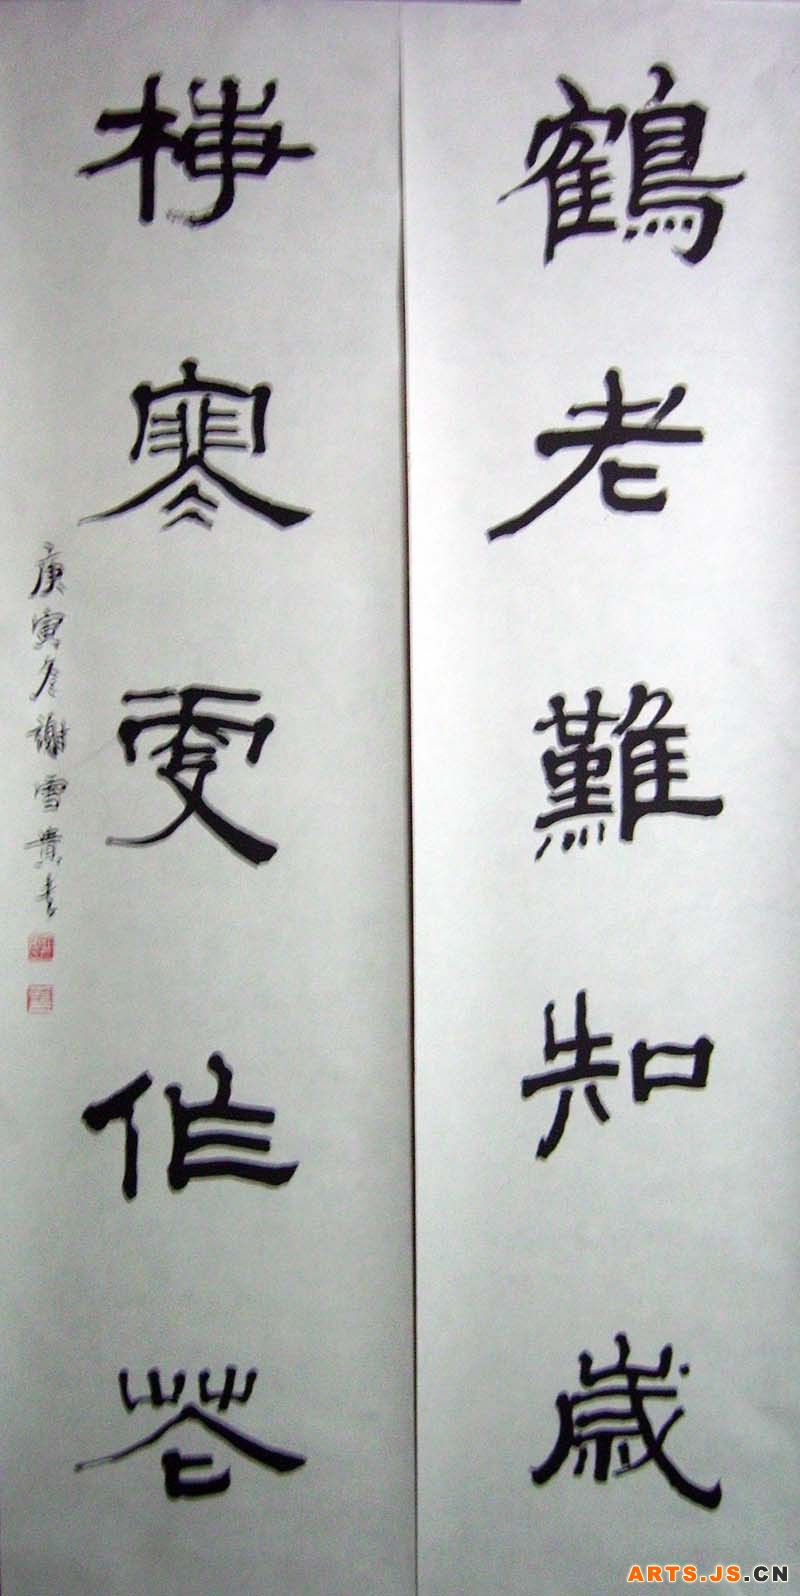 鶴老難知歲
梅寒更作花
庚寅冬謝雪貴書
ARTS.JS.CN